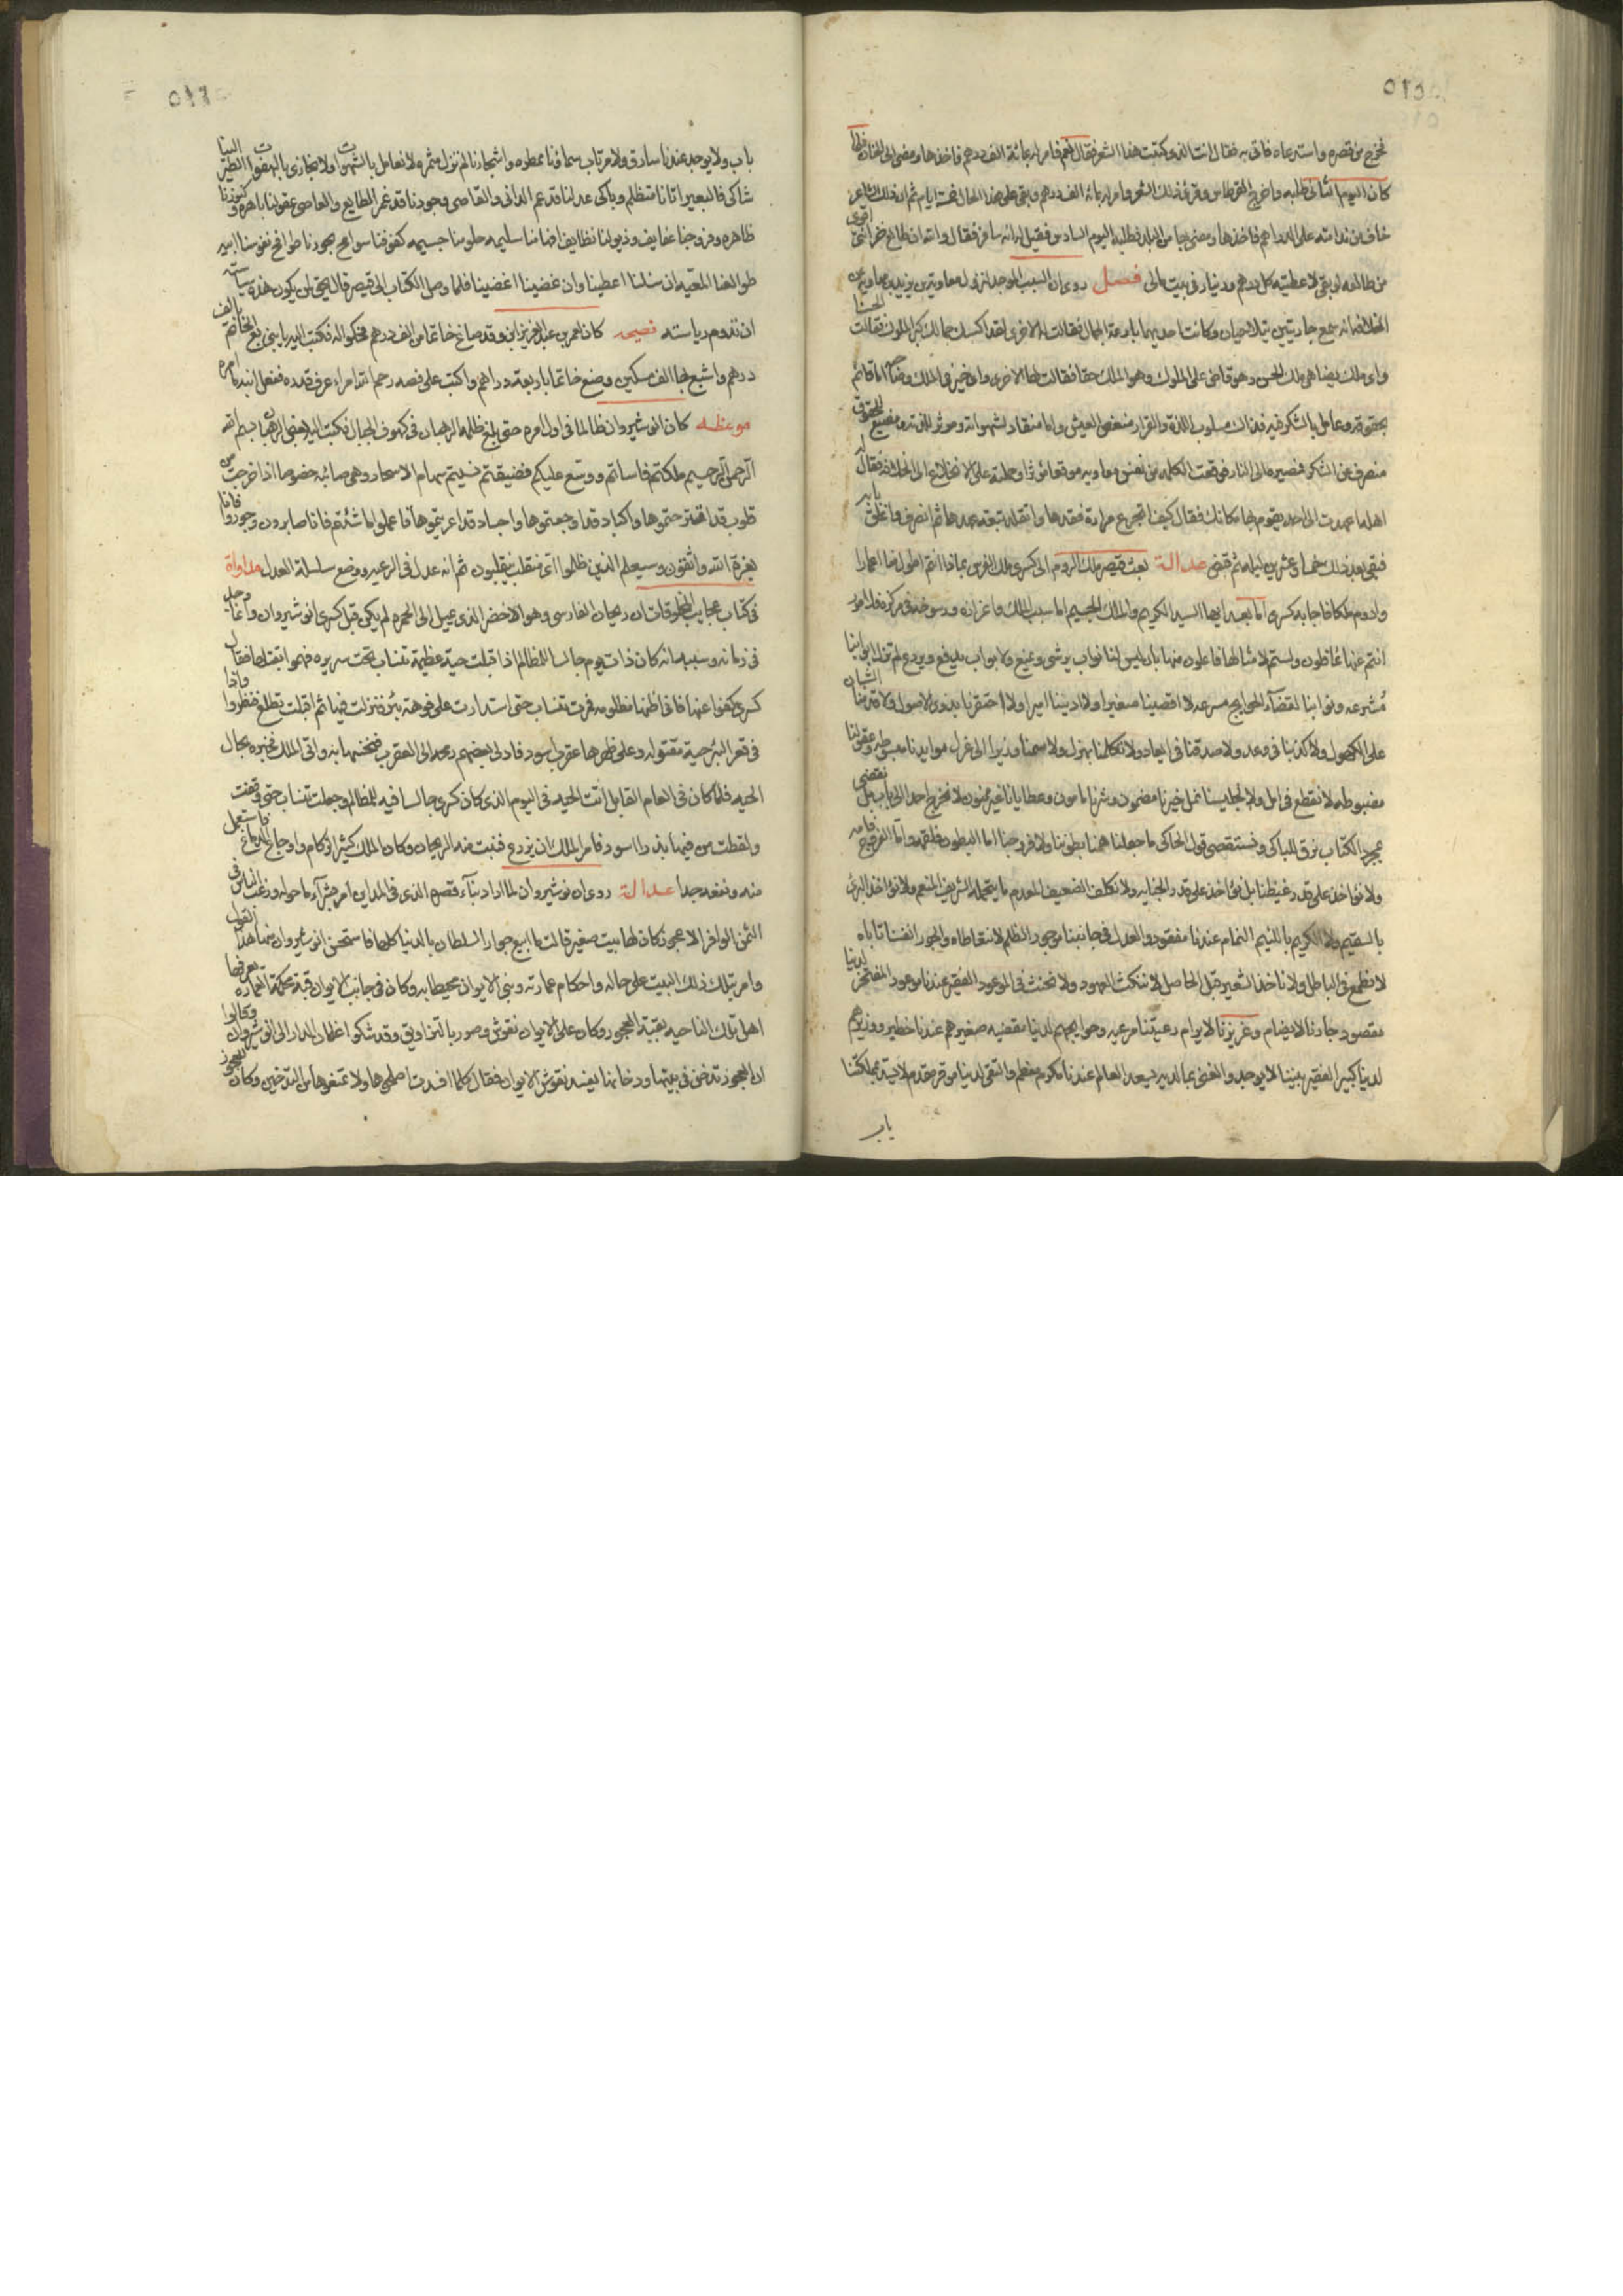 ٥١٥
فخرج من قصره واستدعاه فاتى به فقال انت الذى كتبت هذا الشعر فقال نعم فامر له بمائة الف درهم فاخذها ومضى الى الخان فلما
كان اليوم الثانى طلبه واخرج القرطاس وقرئ ذلك الشعر وامر له بمائة الف درهم وبقى على هذا الحال خمسة ايام ثم ان ذلك الشاعر
خاف من ندامته على الدراهم فاخذها ومضى بها من البلد فطلبه اليوم السادس فقيل له انه سافر فقال والله ان طالع خراسانى اقوى
من طالعه لو بقى لاعطيته كل درهم ودينار فى بيت مالى فصل روى ان السبب الموجد لنزول معاوية بن يزيد بن معاوية عن
الخلافة انه سمع جاريتين يتلاحيان وكانت احديهما بارعة الجمال فقالت لها الاخرى لقد اكسبك جمالك كبر الملوك فقالت الحسنا
واى ملك يضاهى ملك الحسن وهو قاض على الملوك وهو الملك حقا فقالت لها الاخرى واى خير فى الملك وصاحبه اما قائم
بحقوقه وعامل بالشكر فيه فذاك مسلوب اللذة والقرار منغص العيش واما منقاد لشهواته وموثر للذته ومضيع للحقوق
منصرف عن الشكر فمصيره الى النار فوقعت الكلمه من نفس معاويه موقعا مؤثرا وحملته على الانخلاع الى الخلافه فقال له
اهله اعهد الى احد يقوم بها مكانك فقال كيف اتجرع مرارة فقدها واتقلد تبعة عهدها ثم انصرف واغلق بابه
فبقى بعد ذلك خمسا وعشرين ليله ثم قبض عدالة بعث قيصر ملك الروم الى كسرى ملك الفرس بماذا انتم اطول منا اعمارا
وادوم ملكا فاجابه كسرى اما بعد ايها السيد الكريم والملك الجسيم اما سبب الملك واعزازه ورسوخه فى مركزه فلامور
انتم عنها غافلون ولستم لامثالها فاعلون منها بان ليس لنا نواب يرشى ويمنع ولا بواب يدفع ويردع لم تزل ابوابنا
مشرعه ونوابنا لقضاء الحوايج مسرعه لا اقصينا صغيرا ولا ادنينا اميرا ولا احتقرنا بذوى الاصول ولا قدمنا الشبان
على الكهول ولا كذبنا فى وعد ولا صدقنا فى ايعاد ولا تكلمنا بهزل ولا سمنا وزيرا الى عزل موايدنا مبسوطه وعقولنا
مضبوطه لا نقطع فى امل ولا لجليسنا نمل خيرنا مضمون وشرنا مامون وعطايانا غير ممنون لا نحوج احدا الى باب بل نقضى
بمجرد الكتاب نرق للباكى ونستقصى قول الحاكى ما جعلنا همنا بطوننا ولا فروجنا اما البطون فلقمه واما الفروج فامه
ولا نؤاخذ على قدر غيظنا بل نؤاخذ على قدر الجنايه ولا نكلف الضعيف المعدم ما يتحمله الشريف المنعم ولا نؤاخذ البرئ
بالسقيم ولا الكريم باللئيم النمام عندنا مفقود والعدل فى جانبنا موجود الظلم لا نتعاطاه والجور انفسنا تاباه
لا نطمع فى الباطل ولا ناخذ الشعير قبل الحاصل لا ننكث العهود ولا نحنث فى الموعود الفقير عندنا موعود المفتخر لدينا
مقصود جارنا لا يضام وعزيزنا لا يرام رعيتنا مرعيه وحوايجهم لدينا مقضيه صغيرهم عندنا خطير ووزيرهم
لدينا كبير الفقير بيننا لا يوجد والغنى بما لديه يسعد العالم عندنا مكرم معظم والتقى لدينا موقر مقدم لا يسد بمملكتنا
باب
٥١٦
باب ولا يوجد عندنا سارق ولا مرتاب سماؤنا ممطره واشجارنا لم تزل مثمره ولا نعامل بالشهوات ولا نجازى بالهفوات الطير الينا
شاكى فالبعير اتانا متظلم وباكى عدلنا قد عم الدانى والقاصى وجودنا قد غمر الطايع والعاصى عقولنا باهره وكنوزنا
ظاهره وفروجنا عفايف وذيولنا نظايف افهامنا سليمه حلومنا جسيمه كفوفنا سوامح بحورنا طوافح نفوسنا ابيه
طوالعنا المعيه ان سئلنا اعطينا وان غضبنا اغضينا فلما وصل الكتاب الى قيصر قال يحق لمن يكون هذه سياسته
ان تدوم رياسته نصيحه كان لعمر بن عبد العزيز ابن وقد صاغ خاتما من الف درهم فحكوا له فكتب اليه يا بنى بع الخاتم بالف
درهم واشبع بها الف مسكين وضع خاتما باربعة دراهم واكتب على فصه رحم الله امراء عرف قدره ففعل ابنه ما امره
موعظه كان انوشيروان ظالما فى اول امره حتى بلغ ظلمه الرهبان فى كهوف الجبال فكتب اليه بعض الرهبان بسم الله
الرحمن الرحيم ملكتم فاسأتم ووسع عليكم فضيقتم نسيتم سهام الاسحار وهى صائبه خصوصا اذا خرجت من
قلوب قد اقترحتموها واكباد قد اوجعتموها واجساد قد اعريتموها فاعملوا ما شئتم فانا صابرون وجوروا فانا
بعزة الله واثقون وسيعلم الذين ظلموا اى منقلب ينقلبون ثم انه عدل فى الرعيه ووضع سلسلة العدل مداواة
فى كتاب عجايب المخلوقات ان ريحان الفارسى وهو الاخضر الذى يميل الى الحمره لم يكن قبل كسرى انوشيروان وانما وجد
فى زمانه وسببه انه كان ذات يوم جالسا للمظالم اذا قبلت حية عظيمة تنساب تحت سريره فهموا بقتلها فقال
كسرى كفوا عنها فانى اظنها مظلومه فمرت تنساب حتى استدارت على فوهة بئر فنزلت فيها ثم اقبلت تطلع فنظروا واذا
فى قعر البئر حية مقتوله وعلى ظهرها عقرب اسود فادلى بعضهم رمحه الى العقرب فنخسها به واتى الملك فخبره بحال
الحيه فلما كان فى العام القابل اتت الحيه فى اليوم الذى كان كسرى جالسا فيه للمظالم وجعلت تنساب حتى وقفت
ولفظت من فيها بذرا اسود فأمر الملك ان يزرع فنبت منه الريحان وكان الملك كثير الزكام واوجاع الدماغ فاستعمل
منه ونفعه جدا عدالة روى ان نوشيروان لما اراد بناء قصره الذى فى المداين امر بشراء ما حوله ورغب الناس فى
الثمن الوافر الا عجوز كان لها بيت صغير قالت ما ابيع جوار السلطان بالدنيا كلها فاستحسن انوشيروان منها هذا القول
وامر بترك ذلك البيت على حاله واحكام عمارته وبنى الايوان محيطا به وكان فى جانب الايوان قبة محكمة العماره يعرفها
اهل تلك الناحيه بقبة العجوز وكان على الايوان نقوش وصور بالتزاويق وقد شكوا غلمان الدار الى انوشيروان وقالوا
ان العجوز تدخن فى بيتها ودخانها يفسد نقوش الايوان فقال كلما افسدت اصلحوها ولا تمنعوها من التدخين وكان للعجوز